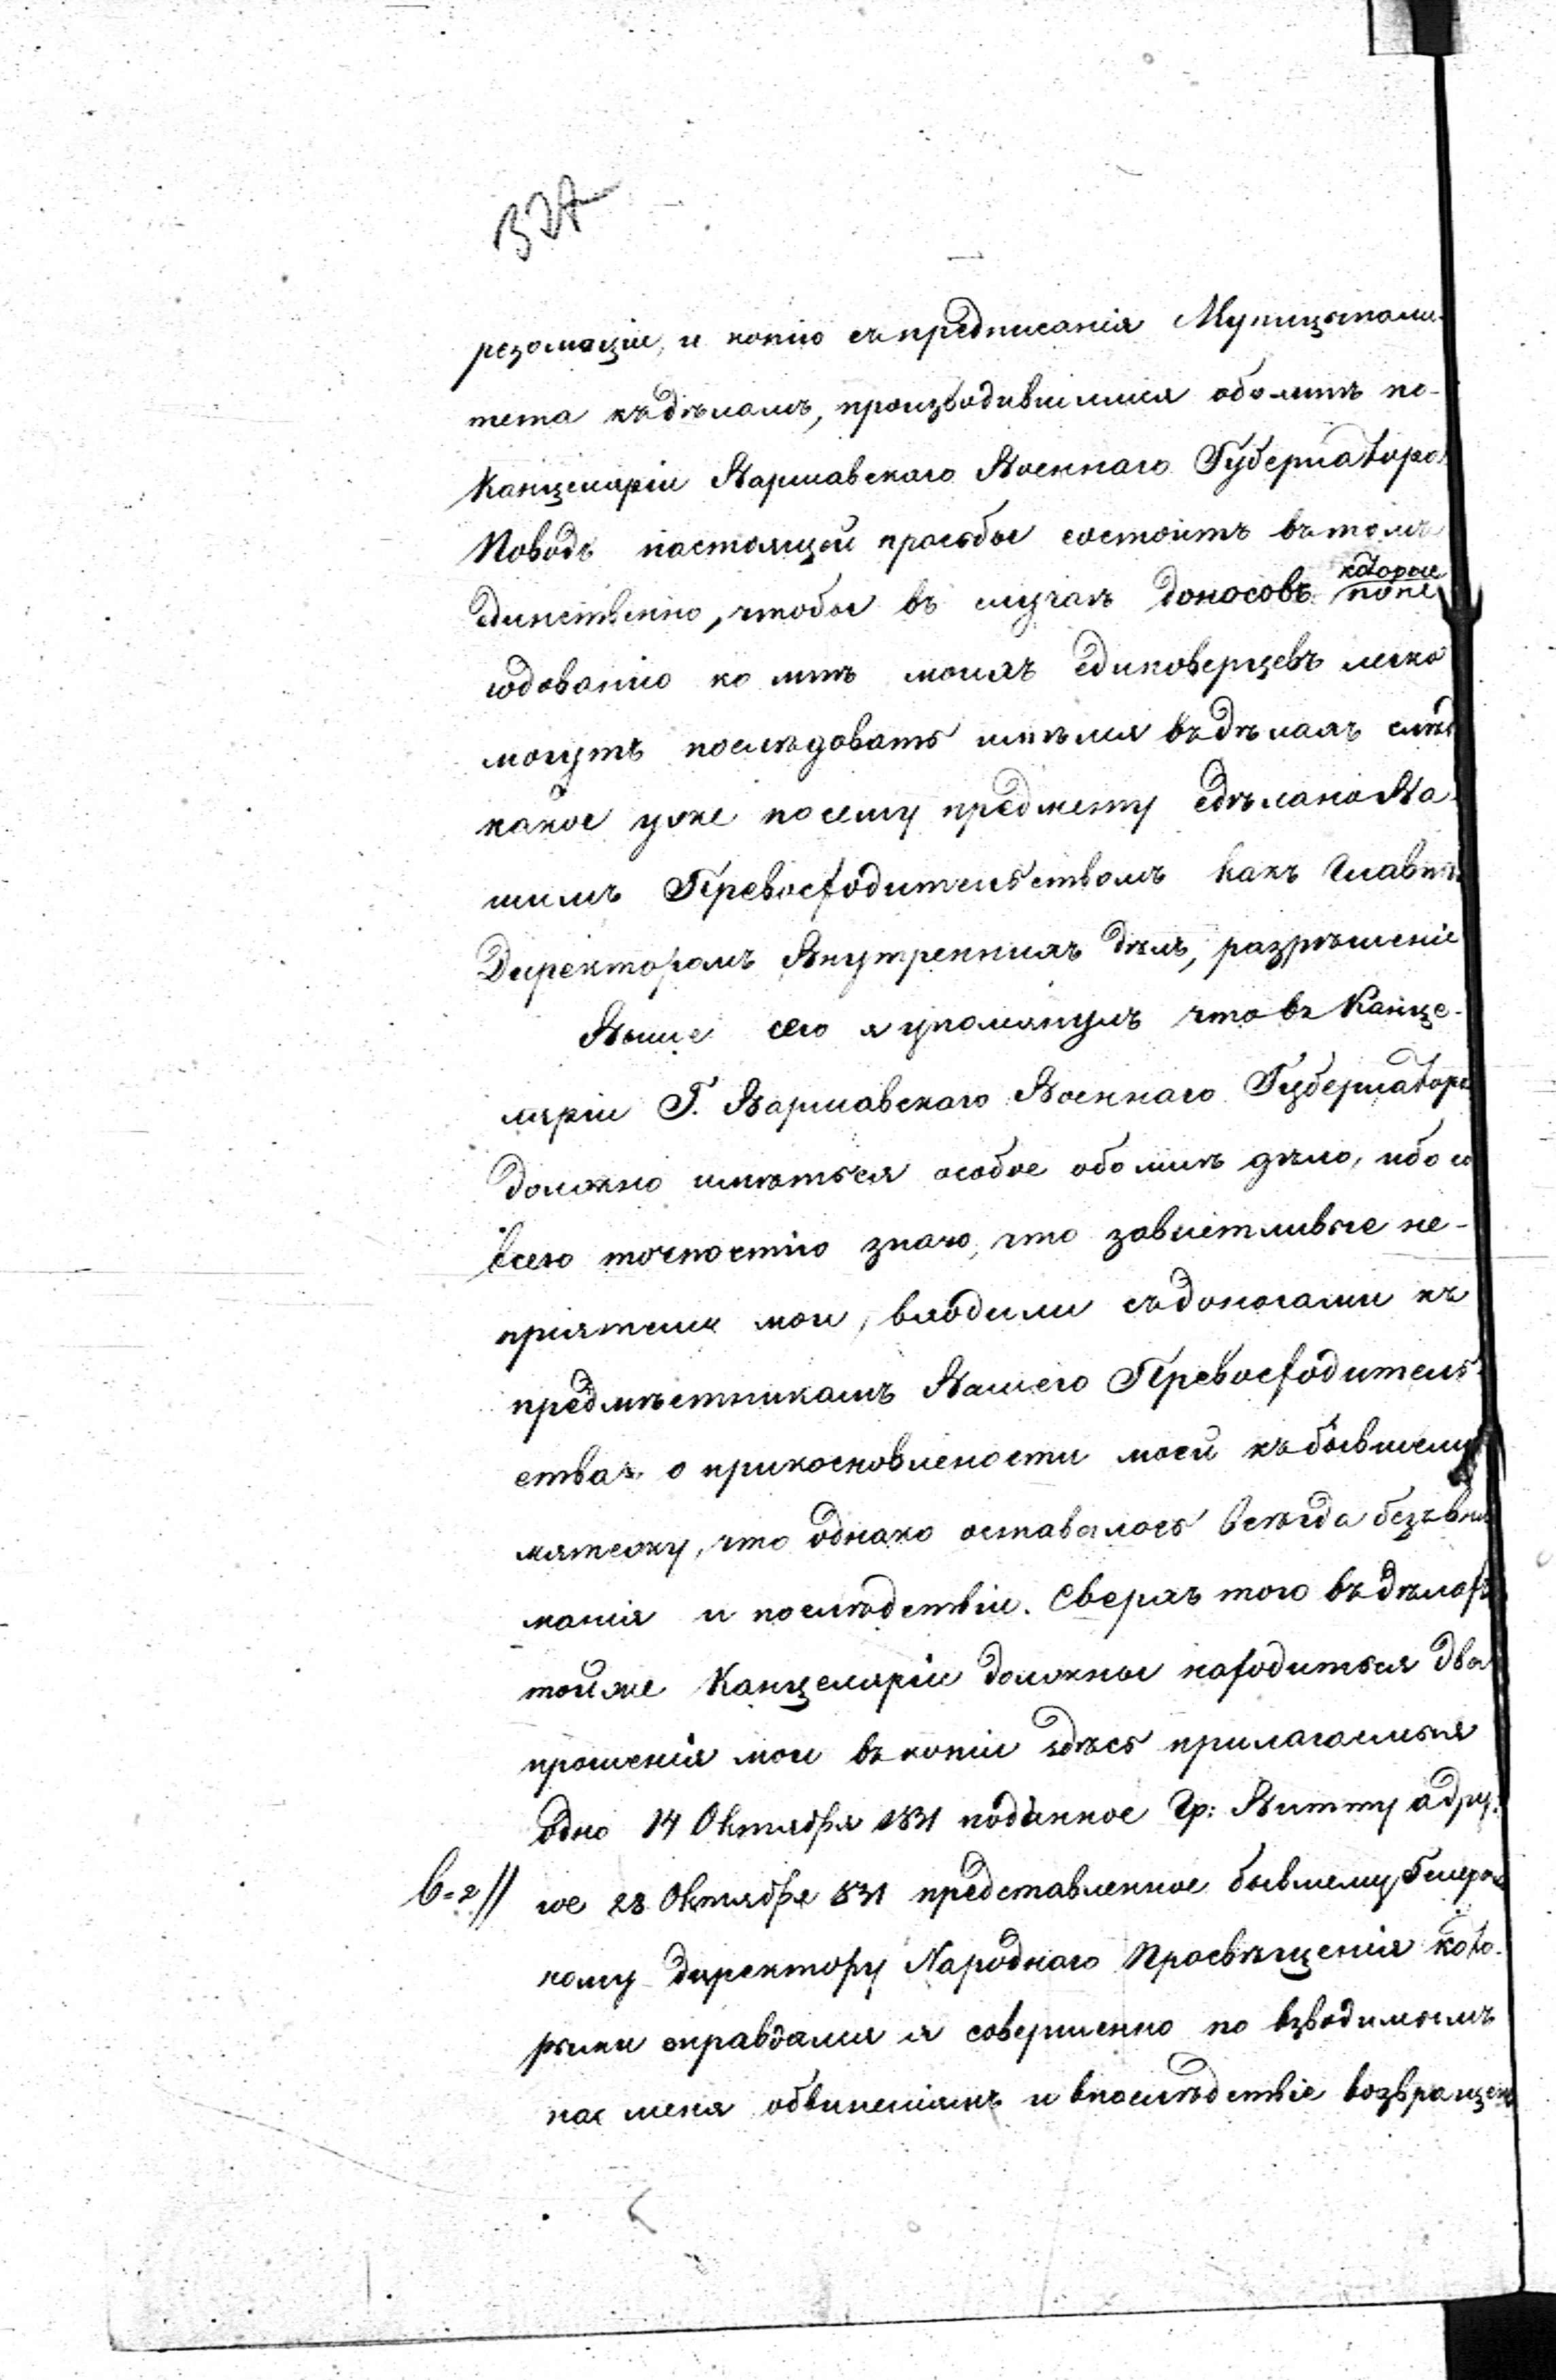 327
резолюціи, и копію съ предписанія Муниципали-
тета къ дѣламъ, производившимся обо мнѣ по-
Канцеляріи Варшавскаго Военнаго Губернатора.
Поводъ настоящей просьбы состоитъ въ томъ
единственно, чтобы въ случаѣ доносовъ которые
по не
годованію ко мнѣ моихъ единоверцевъ легко
могутъ послѣдовать имѣлся въ дѣлахъ слѣдъ
какое уже по сему предмету сдѣлано Ва-
шимъ Превосходительствомъ какъ Главнымъ
Директоромъ Внутреннихъ дѣлъ, разрѣшеніе
Выше сего я упомянулъ что въ Канце-
ляріи Г. Варшавскаго Военнаго Губернатора
должно имѣться особое обо мнѣ дѣло, ибо со
всею точностію знаю, что завистливые не-
пріятели мои, входили съ доносами къ
предмѣстникамъ Вашего Превосходитель-
ства о прикосновлености моей къ бывшему
мятежу, что однако оставалось всегда безъ вни
манія и послѣдствіи. Сверхъ того въ дѣлахъ
той же Канцеляріи должны находиться два
прошенія мои въ копіи здѣсь прилагаемыя
одно 14 Октября 1831 поданное Гр: Витту а дру-
в=2// гое 28 Октября 831 представленное бывшему Генераль
ному Директору Народнаго Просвѣщенія кото-
рыми оправдался я совершенно по взводимымъ
на меня обвиненіямъ и впослѣдствіе возвращены